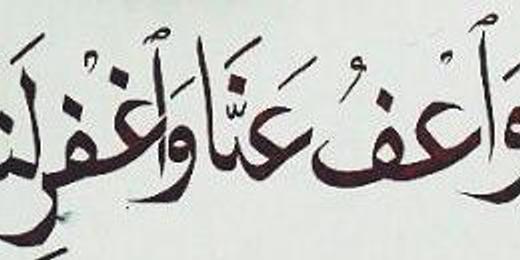 وَٱعْفُ عَنَّا وَٱغْفِرْ لَنَ